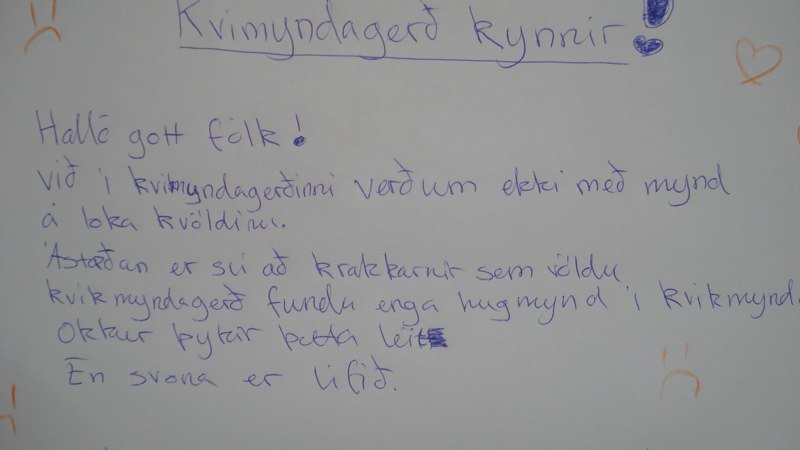 Kvimyndagerð kynnir!
Halló gott fólk!
við í kvimyndagerðinni verðum ekki með mynd
á loka kvöldinu.
Ástæðan er sú að krakkarnir sem völdu
kvikmyndagerð fundu enga hugmynd í kvikmynd.
Okkur þykir þetta leitt
En svona er lífið.